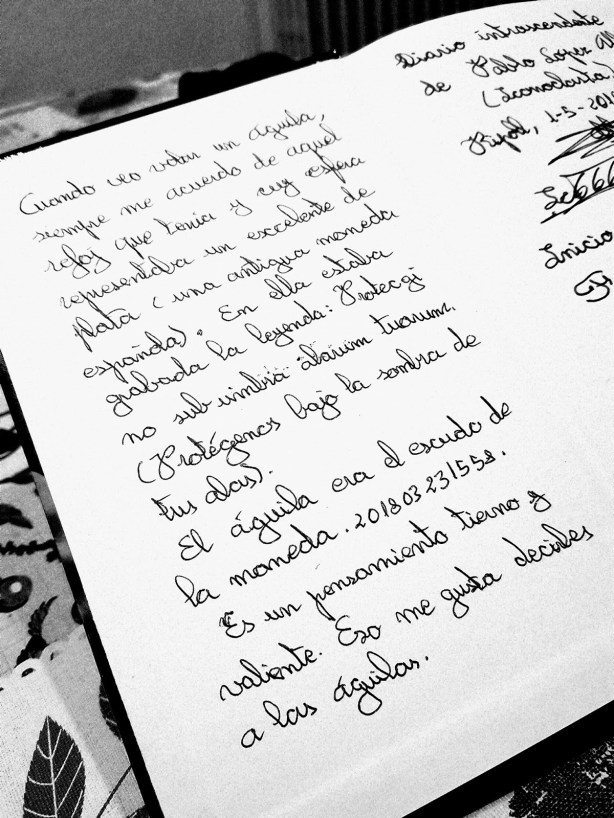 Cuando veo volar un águila,
siempre me acuerdo de aquel
reloj que tenia y cuy esfera
representaba un excelente de
plata (una antigua moneda
española). En ella estaba
grabada la leyenda: Protecgi
no sub umbra alarum tuarum.
(Protégenos bajo la sombra de
tus alas).
El águila era el escudo de
la moneda. 201803231558.
Es un pensamiento tierno y
valiente. Eso me gusta decirles
a las águilas.
Diario intrascendente
de Pablo López
(Iconoclasta)
Ripoll, 1-5-201
Inicio